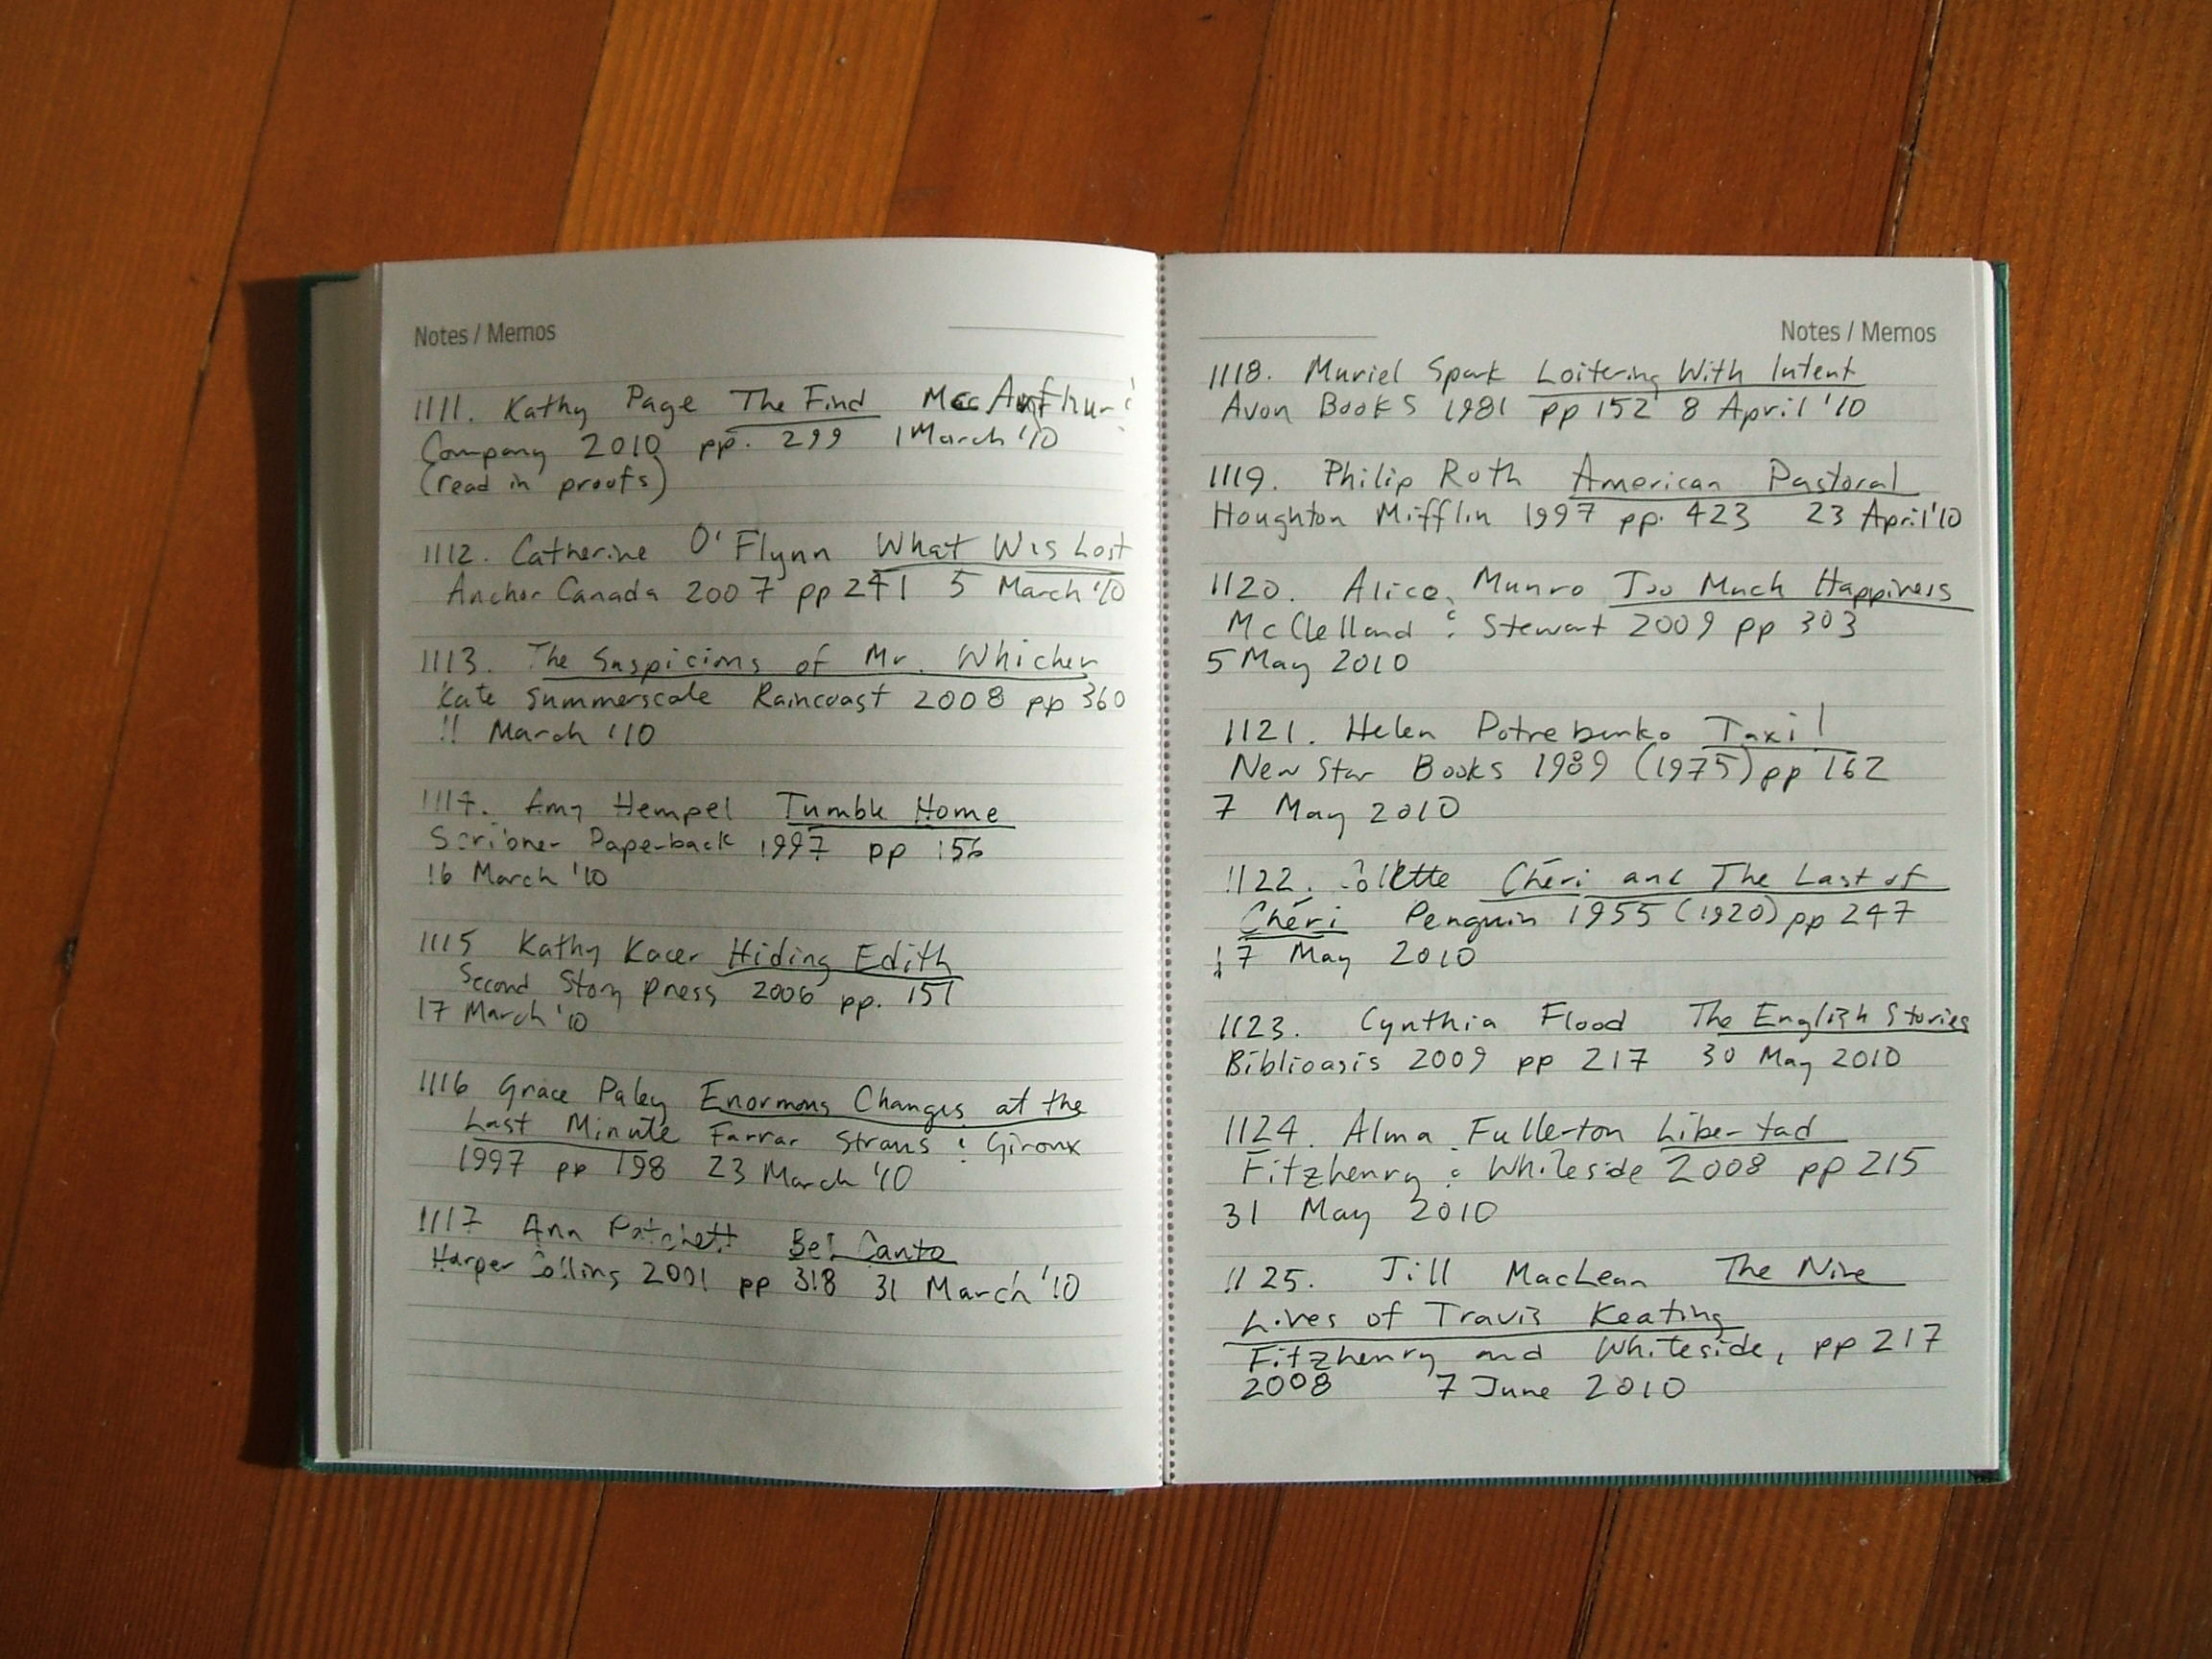 Notes / Memos
1111. Kathy Page The Find MacArthur &
Company 2010 pp. 299 1 March '10
(read in proofs)
1112. Catherine O'Flynn What Was Lost
Anchor Canada 2007 pp 241 5 March '10
1113. The Suspicions of Mr. Whicher
Kate Summerscale Raincoast 2008 pp 360
11 March '10
1114. Amy Hempel Tumble Home
Scribner Paperback 1997 pp 156
16 March '10
1115 Kathy Kacer Hiding Edith
Second Story Press 2006 pp. 151
17 March '10
1116 Grace Paley Enormous Changes at the
Last Minute Farrar Straus & Giroux
1997 pp 198 23 March '10
1117 Ann Patchett Bel Canto
Harper Collins 2001 pp 318 31 March '10
Notes / Memos
1118. Muriel Spark Loitering With Intent
Avon Books 1981 pp 152 8 April '10
1119. Philip Roth American Pastoral
Houghton Mifflin 1997 pp. 423 23 April '10
1120. Alice Munro Too Much Happiness
McClelland & Stewart 2009 pp 303
5 May 2010
1121. Helen Potrebenko Taxi!
New Star Books 1989 (1975) pp 162
7 May 2010
1122. Colette Chéri and The Last of
Chéri Penguin 1955 (1920) pp 247
17 May 2010
1123. Cynthia Flood The English Stories
Biblioasis 2009 pp 217 30 May 2010
1124. Alma Fullerton Libertad
Fitzhenry & Whiteside 2008 pp 215
31 May 2010
1125. Jill MacLean The Nine
Lives of Travis Keating
Fitzhenry and Whiteside, pp 217
2008 7 June 2010